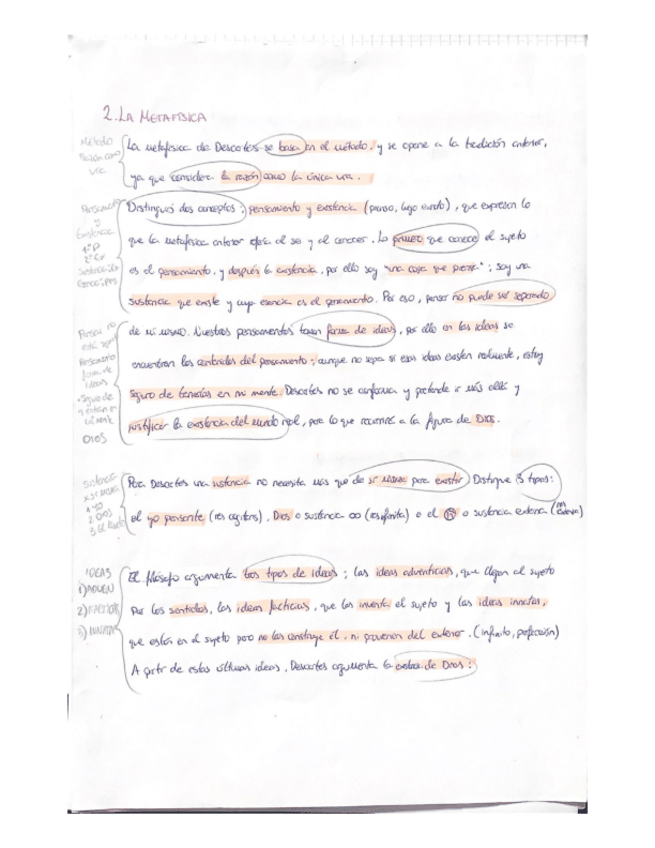 2. LA METAFÍSICA
Método
Razón como
vía
La metafísica de Descartes se basa en el método, y se opone a la tradición anterior,
ya que considera la razón como la única vía.
Pensamiento
y
Existencia
1º P
2º Ex
Distinguirá dos conceptos: pensamiento y existencia (pienso, luego existo), que expresan lo
que la metafísica anterior el ser y el conocer. Lo primero que conoce el sujeto
es el pensamiento, y después la existencia, por ello soy "una cosa que piensa"; soy una
sustancia que existe y cuya esencia es el pensamiento. Por eso, pensar no puede ser separado
Pensar no
Pensamiento
forma de
ideas
mente
DIOS
de mi mismo. Nuestros pensamientos toman forma de ideas, por ello en las ideas se
encuentran los contenidos del pensamiento; aunque no sepa si esas ideas existen realmente, estoy
seguro de tenerlas en mi mente. Descartes no se conforma y pretende ir más allá y
justificar la existencia del mundo real, para lo que recurrirá a la figura de DIOS.
Sustancia
1 yo
2. DIOS
3
Para Descartes una sustancia no necesita más que de sí misma para existir. Distingue 3 tipos:
el yo pensante (res cogitans), Dios o sustancia ∞ (res infinita) o el o sustancia extensa (res extensa)
IDEAS
1) ADVEN
2) FACTICIAS
3) INNATAS
El filósofo argumenta tres tipos de ideas: las ideas adventicias, que llegan al sujeto
por los sentidos, las ideas facticias, que las inventa el sujeto y las ideas innatas,
que están en el sujeto pero no las construye él, ni provienen del exterior. (infinito, perfección)
A partir de estas últimas ideas, Descartes argumenta la existencia de Dios: